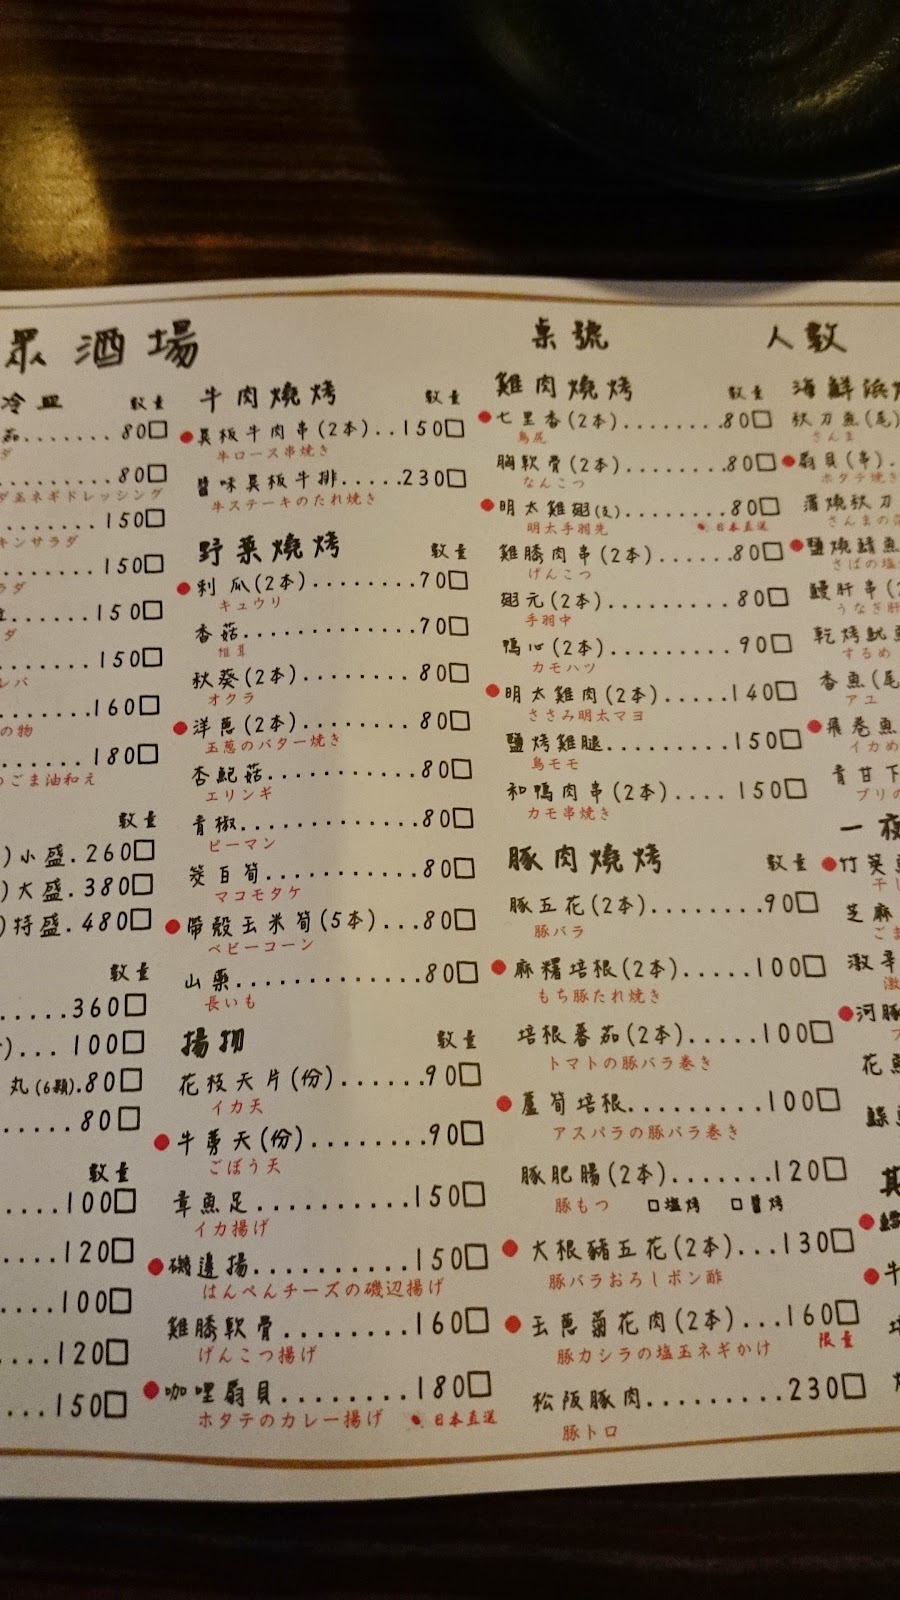 眾酒場
桌號
人數
冷皿 數量
茄.......80□
ダ
.........80□
ダ玉ネギドレッシング
.........150□
キンサラダ
.........150□
ラダ
.........150□
ダ
.........150□
レバ
.........160□
の物
.........180□
のごま油和え
數量
)小盛.260□
)大盛.380□
)特盛.480□
數量
.....360□
)...100□
丸(6顆).80□
.....80□
數量
....100□
....120□
....100□
....120□
...150□
牛肉燒烤 數量
異板牛肉串(2本)..150□
牛ロース串焼き
醬味異板牛排.....230□
牛ステーキのたれ焼き
野菜燒烤 數量
刺瓜(2本).........70□
キュウリ
香菇..............70□
椎茸
秋葵(2本)........80□
オクラ
洋蔥(2本)........80□
玉葱のバター焼き
杏鮑菇............80□
エリンギ
青椒..............80□
ピーマン
筊白筍............80□
マコモタケ
帶殼玉米筍(5本)...80□
ベビーコーン
山藥..............80□
長いも
揚物 數量
花枝天片(份)......90□
イカ天
牛蒡天(份)........90□
ごぼう天
章魚足...........150□
イカ揚げ
磯邊揚...........150□
はんぺんチーズの磯辺揚げ
雞膝軟骨.........160□
げんこつ揚げ
咖哩扇貝.........180□
ホタテのカレー揚げ 日本直送
雞肉燒烤 數量
七里香(2本)........80□
鳥尻
胸軟骨(2本)........80□
なんこつ
明太雞翅(支)........80□
明太手羽先 日本直送
雞膝肉串(2本)......80□
げんこつ
翅元(2本).........80□
手羽中
鴨心(2本).........90□
カモハツ
明太雞肉(2本).....140□
ささみ明太マヨ
鹽烤雞腿.........150□
鳥モモ
和鴨肉串(2本)....150□
カモ串焼き
豚肉燒烤 數量
豚五花(2本)........90□
豚バラ
麻糬培根(2本).....100□
もち豚たれ焼き
培根番茄(2本).....100□
トマトの豚バラ巻き
蘆筍培根.........100□
アスパラの豚バラ巻き
豚肥腸(2本).......120□
豚もつ □塩烤 □醬烤
大根豬五花(2本)...130□
豚バラおろしポン酢
玉蔥菊花肉(2本)...160□
豚カシラの塩玉ネギかけ 限量
松阪豚肉.........230□
豚トロ
海鮮浜
秋刀魚(尾)
さんま
扇貝(串).
ホタテ焼き
蒲燒秋刀
さんまの
鹽燒鯖魚
さばの塩
鰻肝串(2
うなぎ肝
乾烤魷魚
するめ
香魚(尾
アユ
飛卷魚
イカめ
青甘下
ブリの
一夜
竹筴魚
干し
芝麻
ごま
激辛
激
河豚
花魚
鰈魚
其
牛